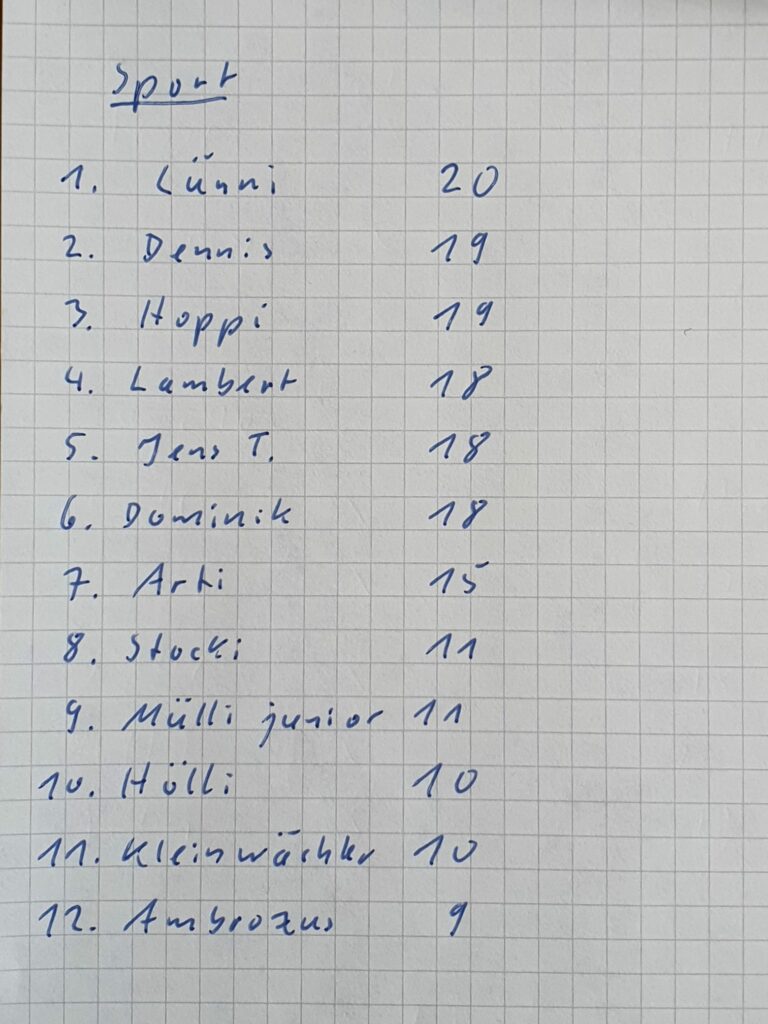 Sport
1. Lünni 20
2. Dennis 19
3. Hoppi 19
4. Lambert 18
5. Jens T. 18
6. Dominik 18
7. Arti 15
8. Stocki 11
9. Mülli junior 11
10. Hölli 10
11. Kleinwächter 10
12. Ambrozus 9